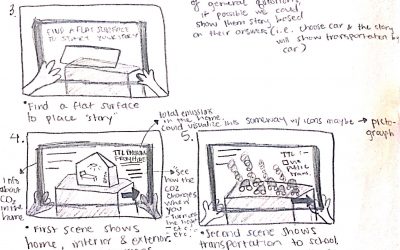 of general question,
if possible we could
show them story based
on their answer (i.e. choose car & the story
will show transportation by
car)
3.
FIND A FLAT SURFACE
TO START YOUR STORY
"Find a flat surface
to place "story"
total emission
in the home.
could visualize this someway w/ icons maybe → picto-
graph
4.
TTL EMISSION
FROM HOME
info
about
CO2
in the
home
"see
how the
CO2
changes
when
you
turn
the
etc.
First scene shows
home, interior & exterior
5.
TTL:
"Second scene shows
transportation to school